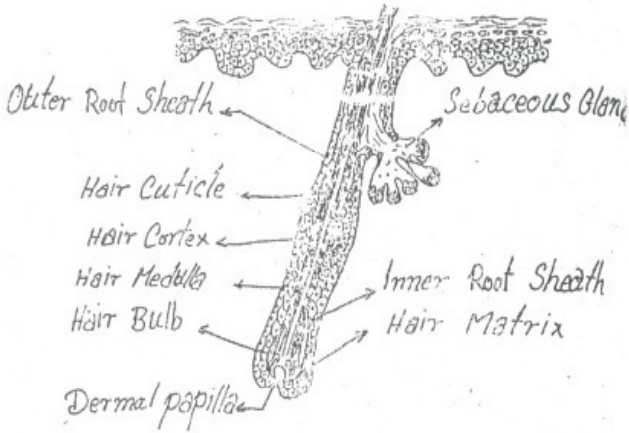 Outer Root Sheath
Sebaceous Glan
Hair Cuticle
Hair Cortex
Hair Medulla
Inner Root Sheath
Hair Bulb
Hair Matrix
Dermal papilla